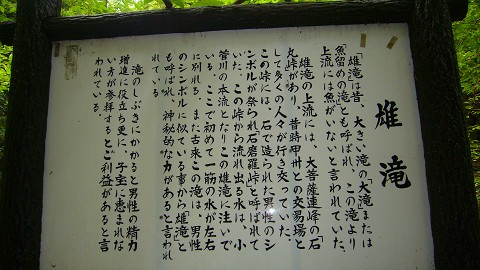 雄滝
「雄滝は昔、大きい滝の「大滝」または
「魚留めの滝」とも呼ばれ、この滝より
上流には魚がいないと言われていた。
雄滝の上流には、大菩薩連峰の「石
丸峠」があり、昔時甲州との交易場と
して多くの人々が行き交っていた。
この峠には、石で造られた男性のシ
ンボルが祭られ「石磨羅峠」と呼ばれて
いた。この峠から流れ出る水は、小
菅川の本流となりこの雄滝に注いで
いる。ここで初めて一筋の水が左右
に別れ、また古来この滝は、男性
のシンボルに似ている事から「雄滝」と
も呼ばれ、神秘的な力があると言わ
れている。
滝のしぶきにかかると男性の精力
増進に役立ち更に、子宝に恵まれな
い方が参拝するとご利益があると言
われている。